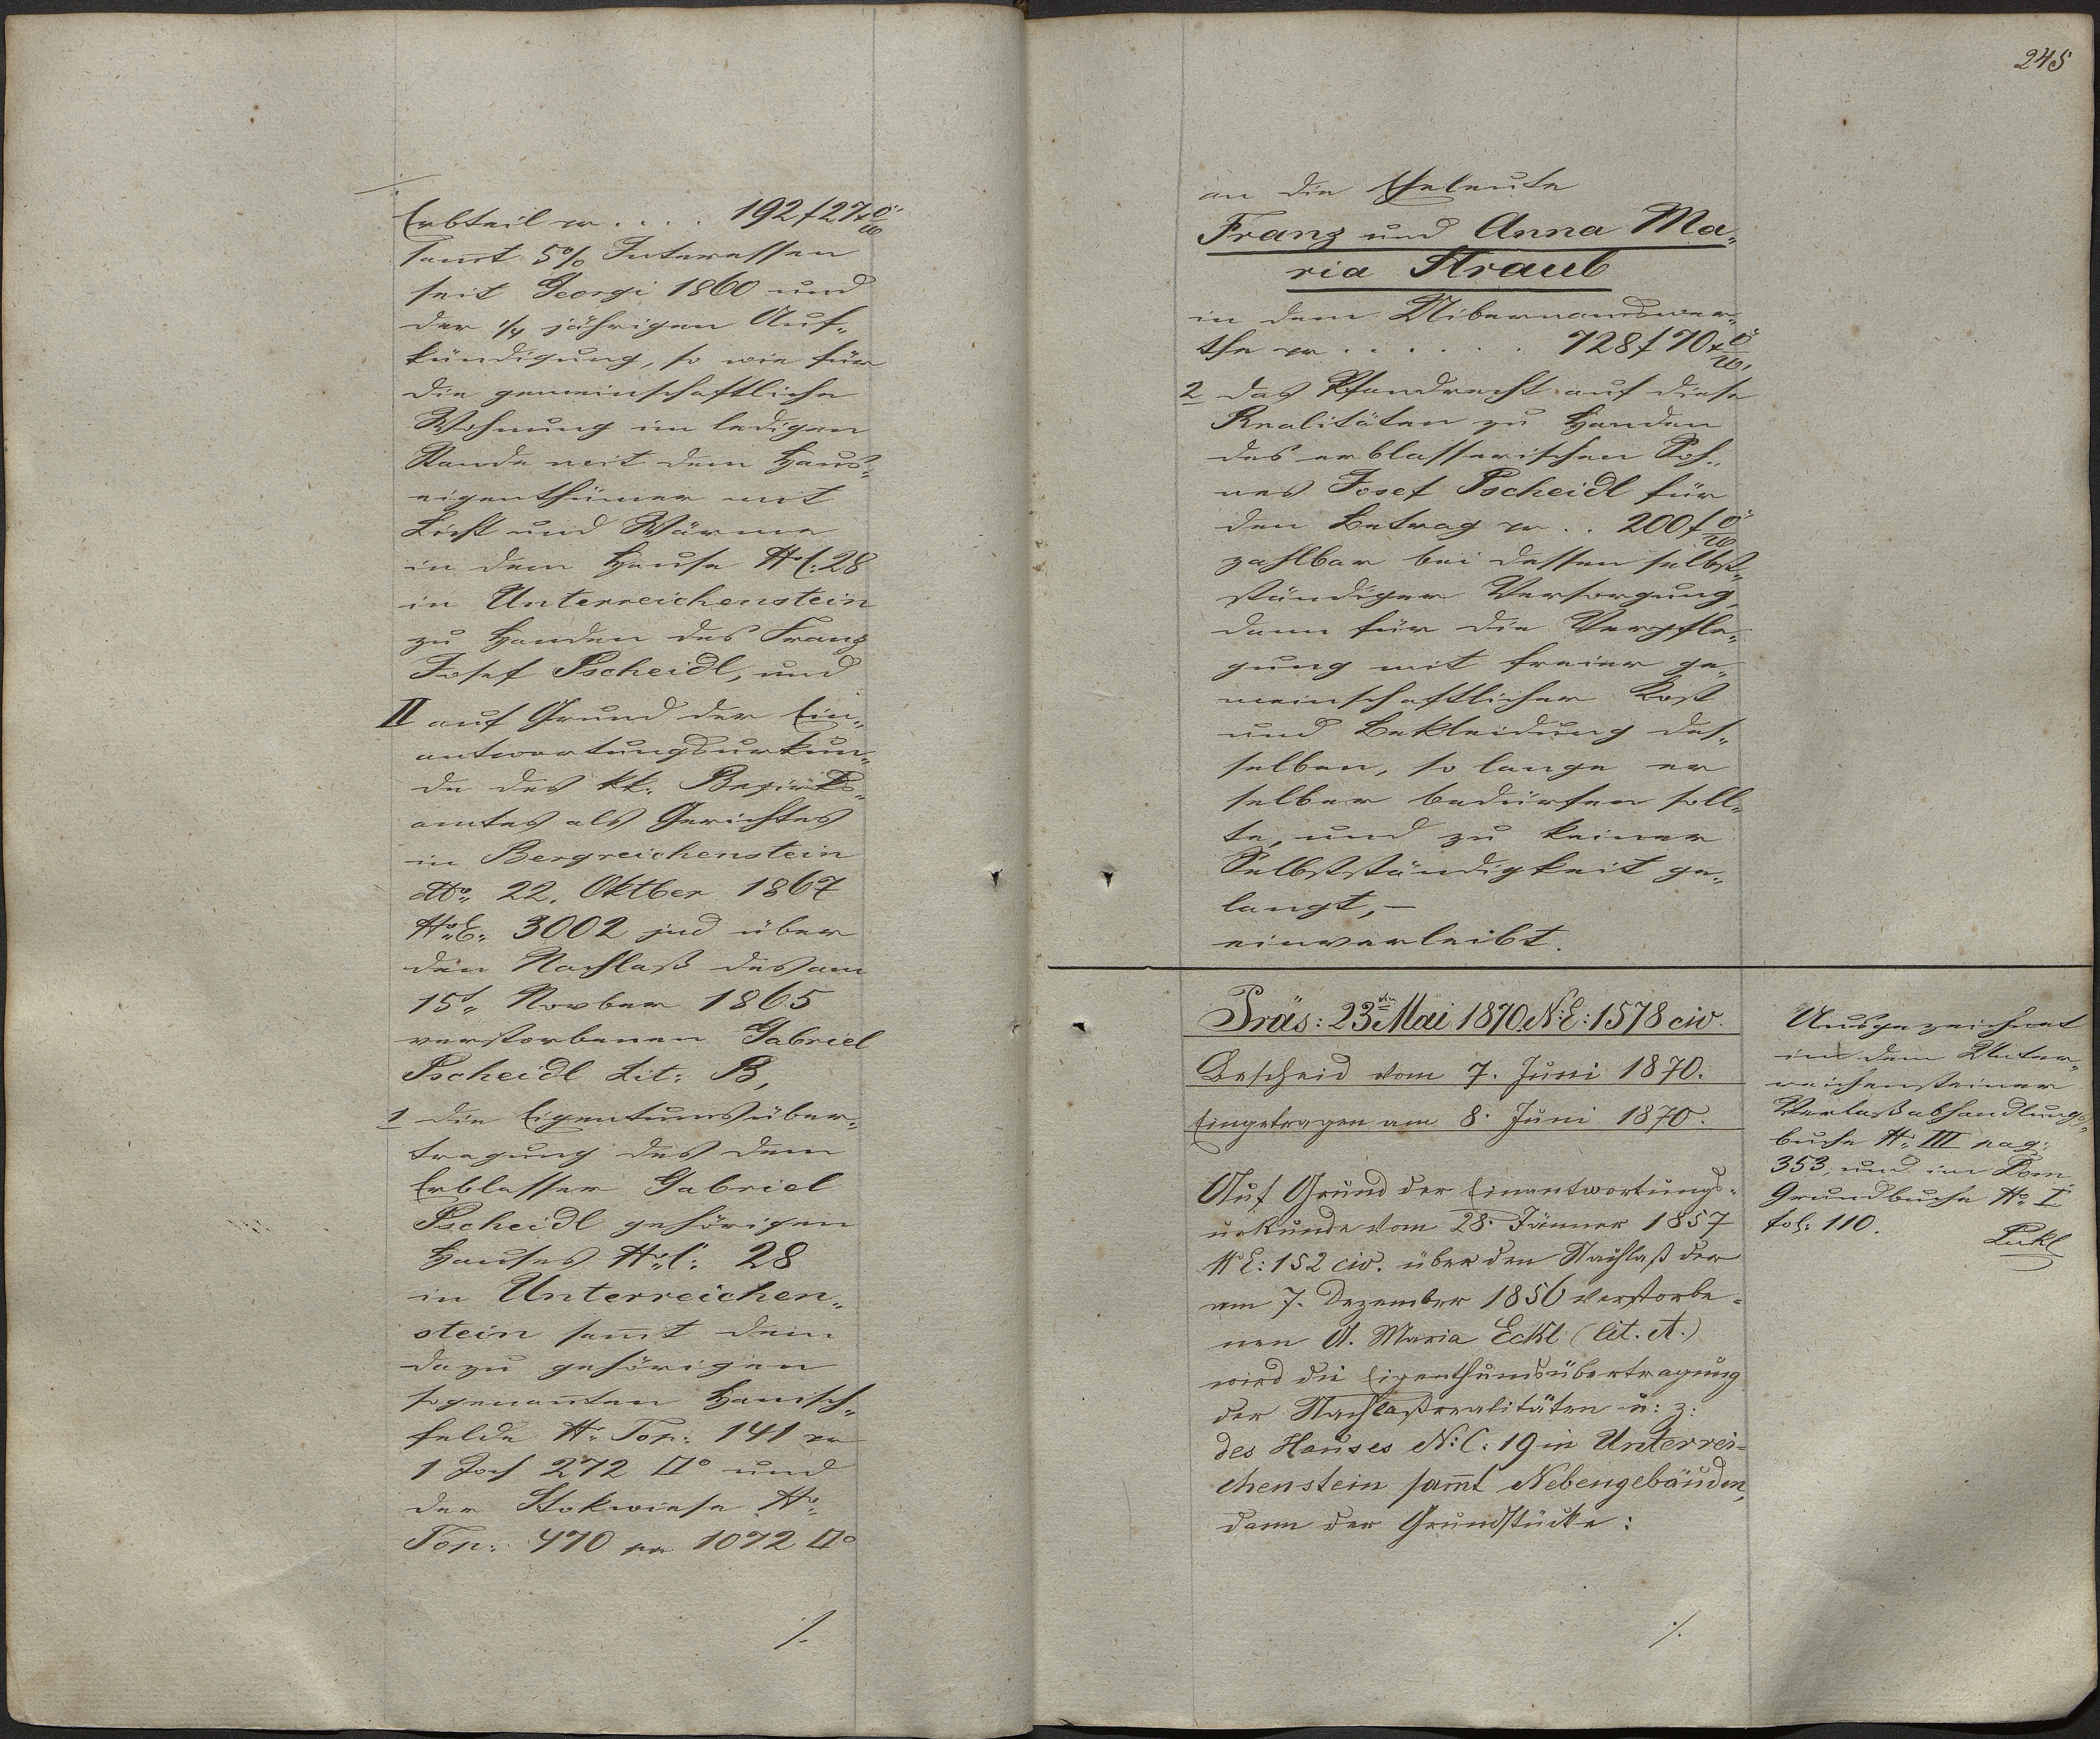 Erbteil pr . . . . 192 f 27 x ö
W
sammt 5% Interessen
seit Georgi 1860 und
der 1/4 jährigen Auf„
kündigung, so wie für
die gemeinschaftliche
Wohnung im ledigen
Stande mit dem Haus„
eigenthümer mit
Licht und Wärme
in dem Hause No C: 28
in Unterreichenstein
zu Handen des Franz
Josef Pscheidl, und
II auf Grund der Ein„
antwortungsurkun„
de des kk: Bezirks„
amtes als Gerichtes
in Bergreichenstein
ddto 22. Oktber 1867
No E: 3002 jud über
den Nachlaß des am
15t Novber 1865
verstorbenen Gabriel
Pscheidl Lit: B,
1 die Eigentumsüber„
tragung des dem
Erblasser Gabriel
Pscheidl gehörigen
Hauses No C: 28
in Unterreichen„
stein sam̄t dem
dazu gehörigen
sogenan̄ten Hanisch„
felde No Top: 141 pr
1 Joch 272 □° und
der Stokwiese No
Top: 470 pr 1072 □°
./.
245
an die Eheleute
Franz und Anna Ma„
ria Straub
in dem Uibernamswer„
the pr . . . . . . 728 f 70 x ö
W.
2 das Pfandrecht auf diese
Realitäten zu Handen
des erblasserischen Soh„
nes Josef Pscheidl für
den Betrag pr . . 200 f ö
W
zahlbar bei dessen selbst„
ständiger Versorgung,
dann für die Verpfle„
gung mit freier ge„
meinschaftlicher Kost
und Bekleidung des„
selben, so lange er
selber bedürfen soll„
te, und zu keiner
Selbstständigkeit ge„
langt, –
einverleibt.
Präs: 23ten Mai 1870 N: E: 1578 civ.
Bescheid vom 7. Juni 1870.
Eingetragen am 8. Juni 1870.
Auf Grund der Einantwortungs=
urkunde vom 28. Jänner 1857
N E: 152 civ. über den Nachlaß der
am 7. Dezember 1856 verstorbe=
nen A. Maria Eckl (lit. A.)
wird die Eigenthumsübertragung
der Nachlaßrealitäten u: z:
des Hauses N: C: 19 in Unterrei=
chenstein sam̄t Nebengebäuden,
dann der Grundstücke:
./.
Ausgezeichnet
in dem Unter„
reichensteiner
Verlaßabhandlungs„
buche No III pag:
353, und im Dom.
Grundbuche No I
fol: 110.